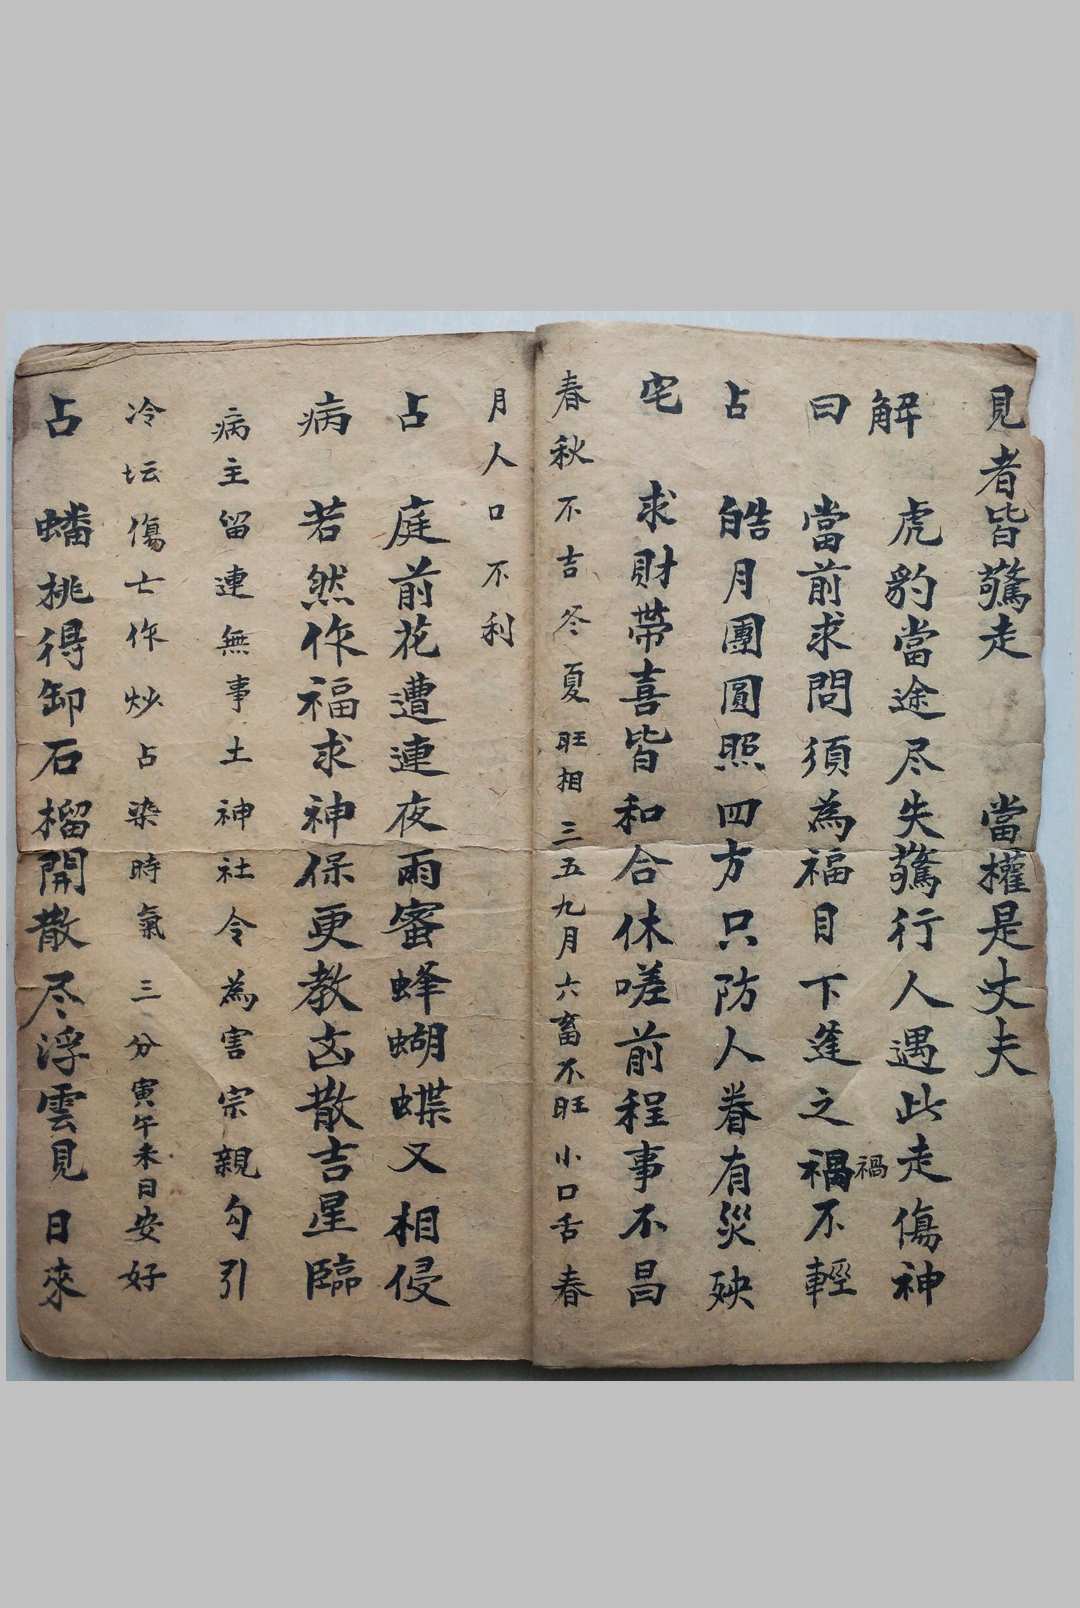 見者皆驚走　當權是丈夫
解　虎豹當途尽失驚行人遇此走傷神
曰　當前求問須為福目下逢之禍不輕
禍
占　皓月團圓照四方只防人眷有災殃
宅　求財帶喜皆和合休嗟前程事不昌
春秋不吉冬夏旺相三五九月六畜不旺小口舌春
月人口不利
占　庭前花遭連夜雨蜜蜂蝴蝶又相侵
病　若然作福求神保更教凶散吉星臨
病主留連無事土神社令為害宗親勾引
冷坛傷亡作炒占染時氣三分寅午未日安好
占　蟠桃得卸石榴開散尽浮雲見日來